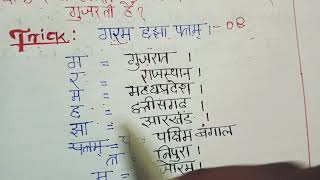 गुजरती है?
Trick: गरम डझा पत्राम :- 08
ग = गुजरात ।
र = राजस्थान ।
म = मध्यप्रदेश ।
छत्तीसगढ़ ।
झा = झारखंड ।
= पश्चिम बंगाल
= त्रिपुरा ।